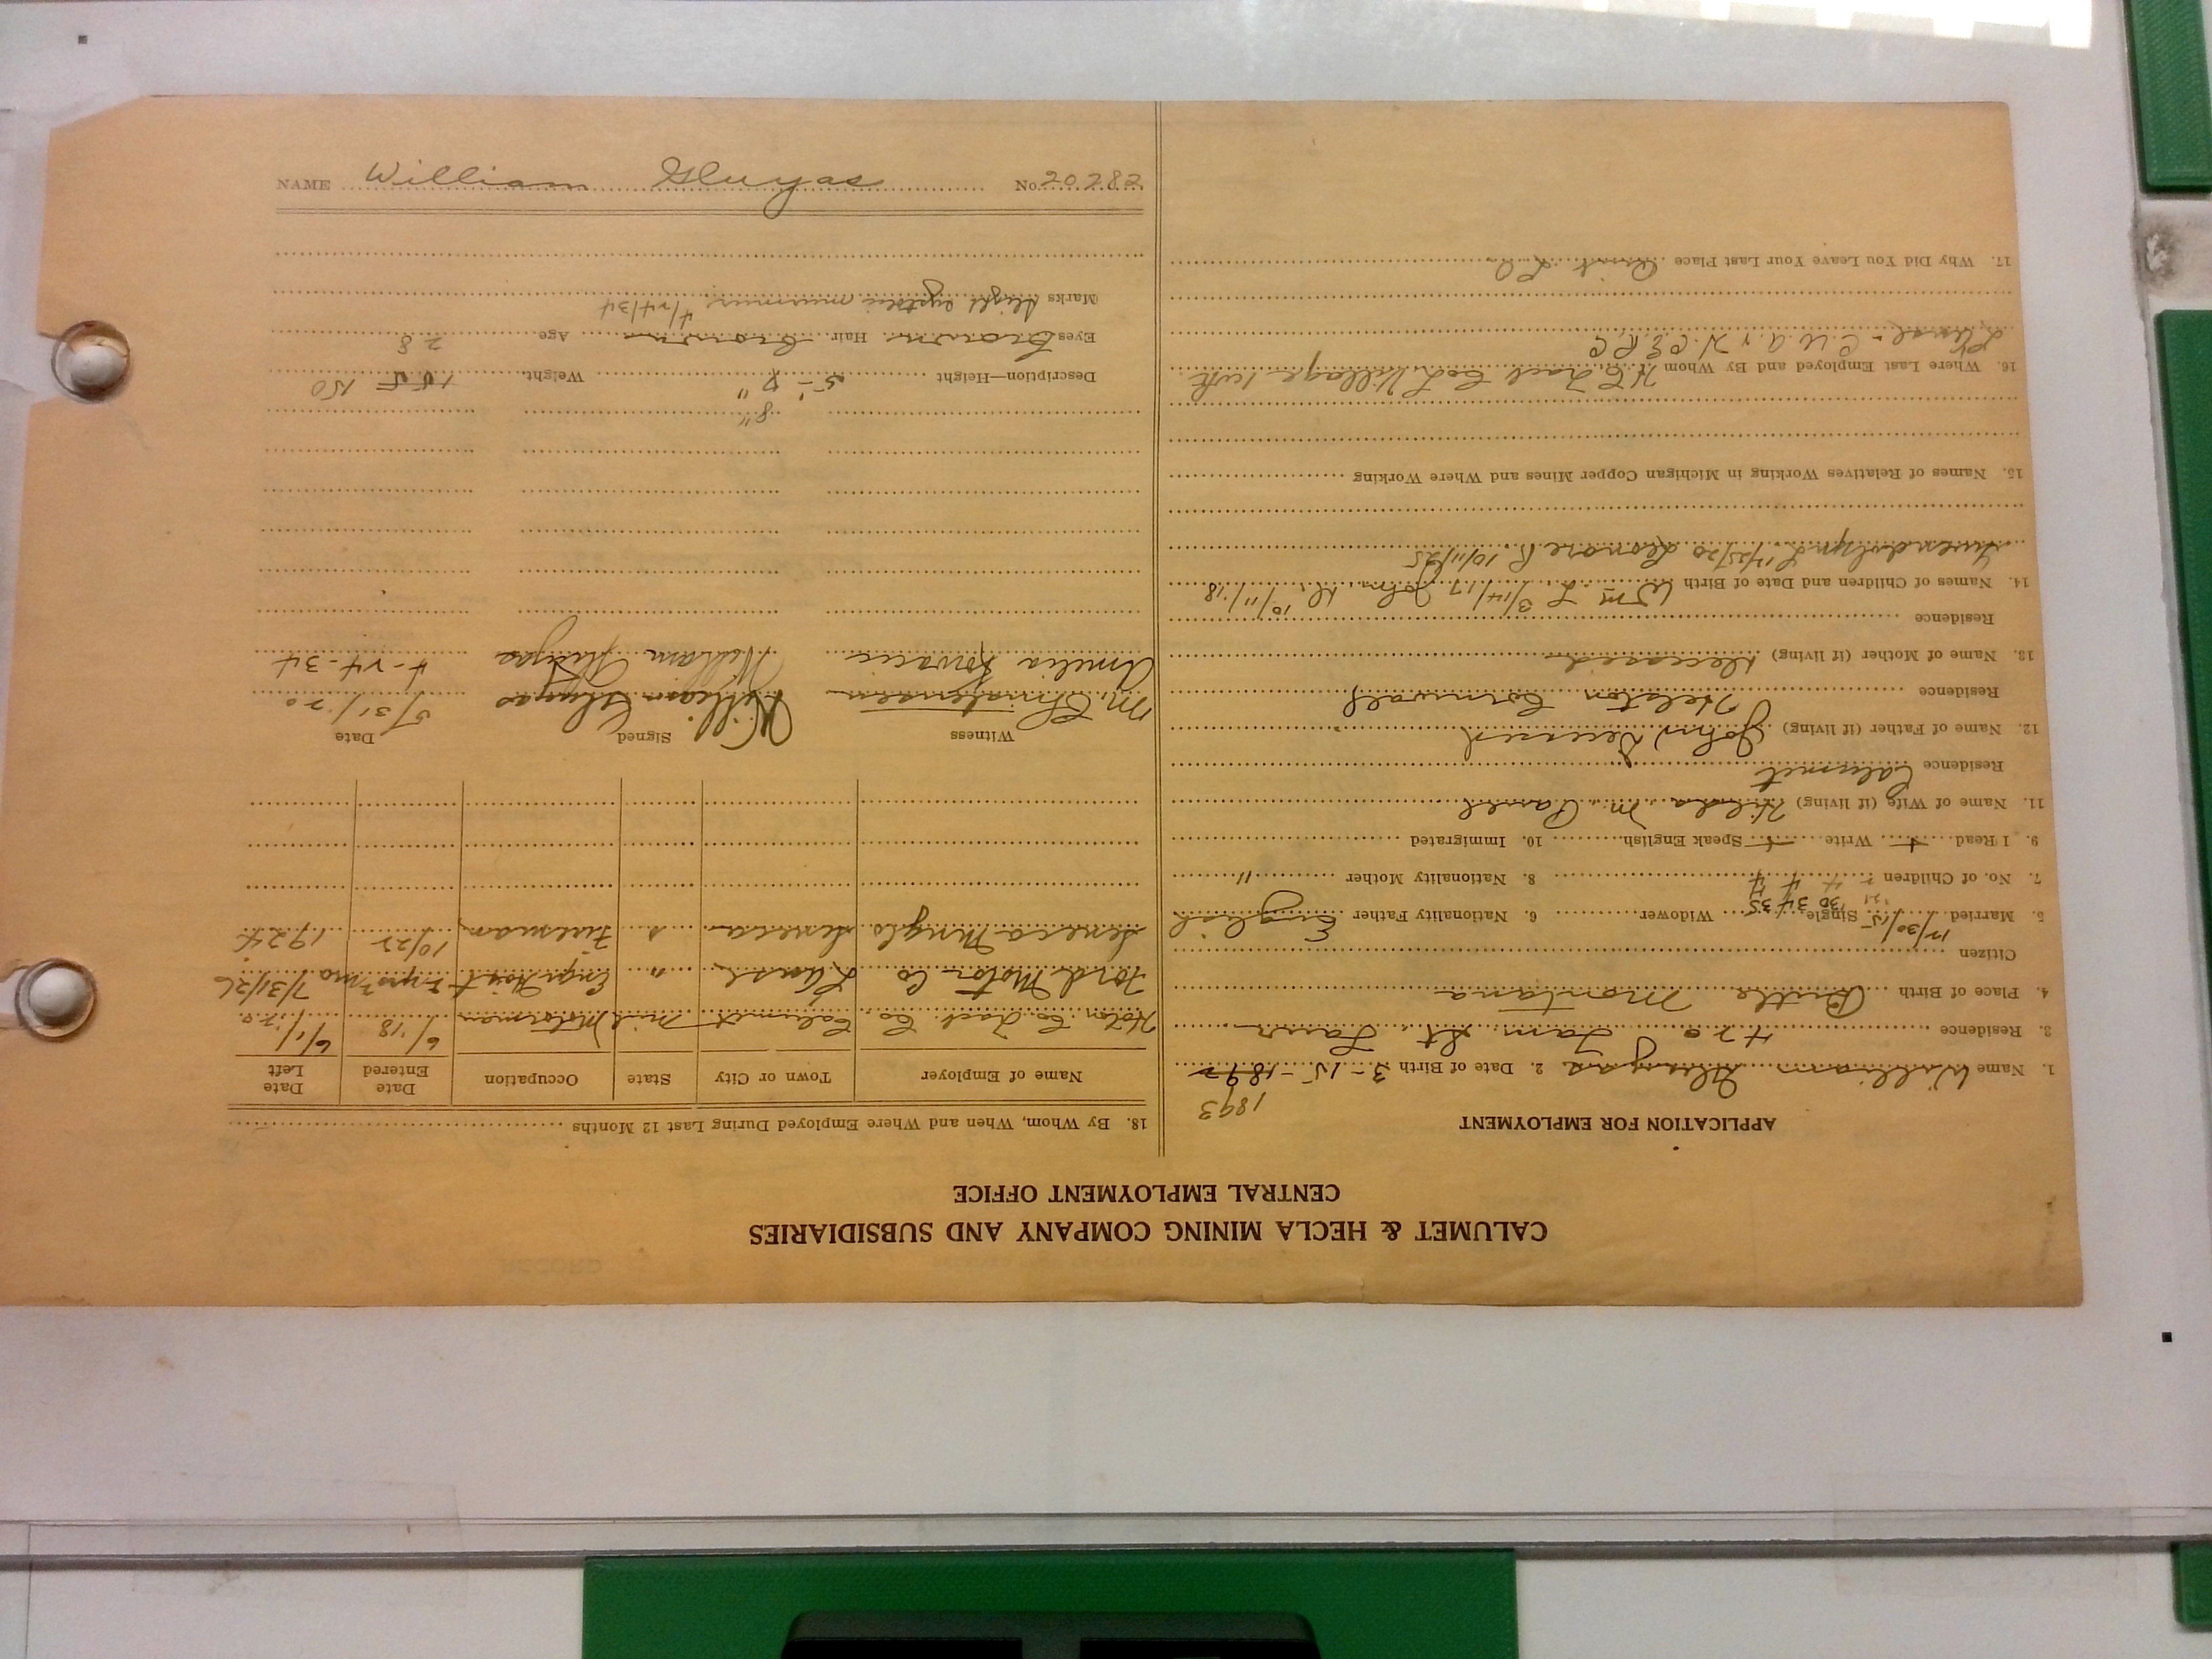 CALUMET & HECLA MINING COMPANY AND SUBSIDIARIES
CENTRAL EMPLOYMENT OFFICE
APPLICATION FOR EMPLOYMENT
1893
1. Name William Gluyas 2. Date of Birth 3-15-1892
3. Residence 420 Tam St Laur
4. Place of Birth Butte Montana
Citizen
5. Married 12/30/15 Single Widower 6. Nationality Father English
30 34 35
7. No. of Children 4 4 4 8. Nationality Mother "
9. I Read + Write + Speak English 10. Immigrated
11. Name of Wife (if living) Hilda M.
Residence Calumet
12. Name of Father (if living) John Deceased
Residence Helston Cornwall
13. Name of Mother (if living) Deceased
Residence
14. Names of Children and Date of Birth Wm L 3/14/17 John H. 10/11/18
Gwendolyn L 1/25/20 Leonore B. 10/11/25
15. Names of Relatives Working in Michigan Copper Mines and Where Working
16. Where Last Employed and By Whom H C Trac Co L. Village
C.W.A. & H.C.E.R.C
17. Why Did You Leave Your Last Place Quit LO
18. By Whom, When and Where Employed During Last 12 Months
Name of Employer Town or City State Occupation Date Entered Date Left
Hoton Co. Trac. Co. Calumet Mich Motorman 6/'18 6/1/20
Ford Motor Co L'Anse " Engr Hoist 7/31/26
Seneca Mng Co. Seneca Fireman 10/22 1924
Witness Signed Date
M. Christensen William Gluyas 5/31/20
Amelia William Gluyas 4-24-34
8"
Description—Height 5' 7" Weight 150
Eyes Brown Hair Brown Age 28
Marks Slight systolic murmur 4/24/34
NAME William Gluyas No. 20282